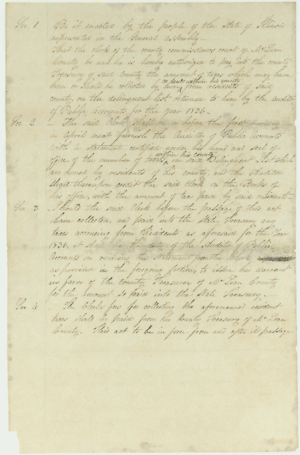 Sec 1 Be it enacted by the people of the State of Illinois
represented in the General Assembly
That the clerk of the county commissioners court of McLean
County be and he is hereby authorized to pay into the county
within his county
Treasury of said county the amount of taxes which may have
been or shall be collected by him from residents of said
county, on the delinquent list returned to him by the auditor
of Public Accounts for the year 1836.
Sec 2 The said Clerk shall on or before the first
in April next furnish the Auditor of Public Accounts
with a statement certified under his hand and seal of
within his county
office of the number of tracts, in said Delinquent list which
are owned by residents of his county, and the Auditor
shall thereupon credit the said Clerk on the Books of
his office, with the amount of tax paid by said residents
Sec 3 Should the said Clerk before the passage of this act
have collected, and paid into the State Treasury any
taxes accruing from Residents as aforesaid for the year
1836, it shall be the duty of the Auditor of Public
Accounts on receiving the statement from the Clerk
as provided in the foregoing section to issue his warrant
in favor of the County Treasurer of McLean County
for the amount so paid into the State Treasury.
Sec 4 The Clerks fees for collecting the aforenamed resident
taxes shall be paid from the County Treasury of McLean
County. This act to be in force from and after its passage.